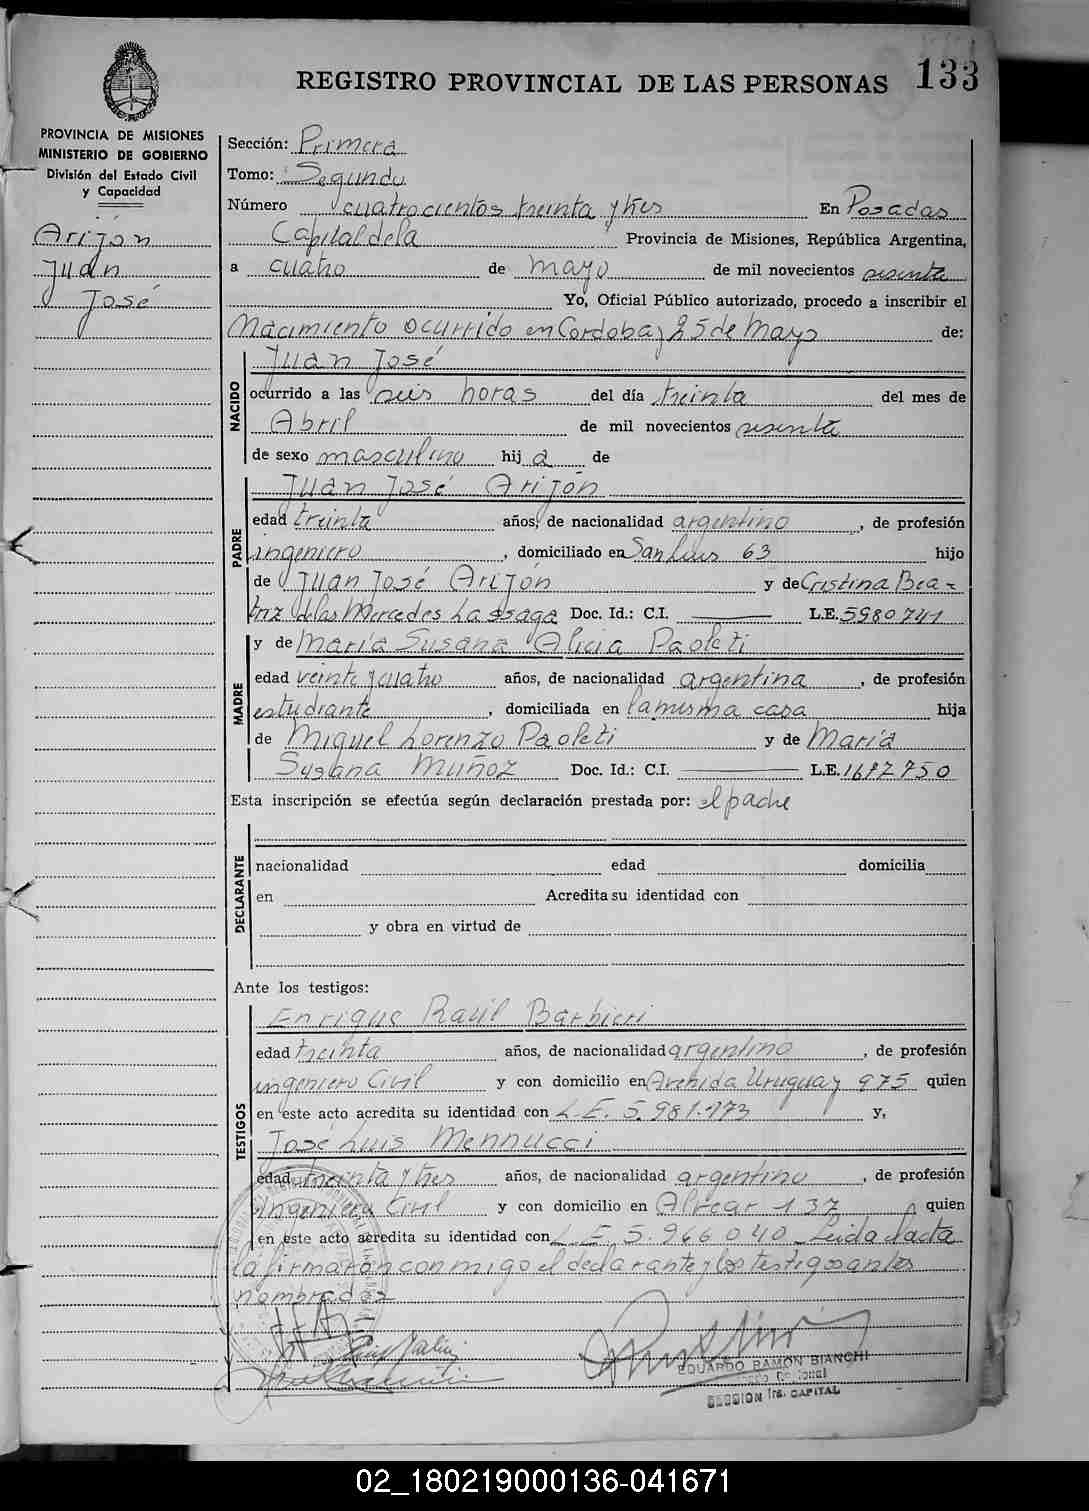 REGISTRO PROVINCIAL DE LAS PERSONAS 133
PROVINCIA DE MISIONES
MINISTERIO DE GOBIERNO
División del Estado Civil
y Capacidad
Arijón
Juan
José
Sección: Primera
Tomo: Segundo
Número cuatrocientos treinta y tres En Posadas
Capital de la Provincia de Misiones, República Argentina,
a cuatro de mayo de mil novecientos sesenta
Yo, Oficial Público autorizado, procedo a inscribir el
Nacimiento ocurrido en Cordoba y 25 de Mayo de:
NACIDO
Juan José
ocurrido a las seis horas del día treinta del mes de
Abril de mil novecientos sesenta
de sexo masculino hij o de
PADRE
Juan José Arijón
edad treinta años, de nacionalidad argentino, de profesión
ingeniero, domiciliado en San Luis 63 hijo
de Juan José Arijón y de Cristina Bea-
triz de las Mercedes Lassaga Doc. Id.: C.I. L.E. 5980741
MADRE
y de María Susana Alicia Paoleti
edad veinte y cuatro años, de nacionalidad argentina, de profesión
estudiante, domiciliada en la misma casa hija
de Miguel Lorenzo Paoleti y de María
Susana Muñoz Doc. Id.: C.I. L.E.
Esta inscripción se efectúa según declaración prestada por: el padre
DECLARANTE
nacionalidad edad domicilia
en Acredita su identidad con
y obra en virtud de
Ante los testigos:
TESTIGOS
Enrique Raúl Barbieri
edad treinta años, de nacionalidad argentino, de profesión
ingeniero Civil y con domicilio en Avenida Uruguay 975 quien
en este acto acredita su identidad con L.E. 5.981.173 y,
José Luis Mennucci
edad treinta y tres años, de nacionalidad argentino, de profesión
Ingeniero Civil y con domicilio en Alvear 137 quien
en este acto acredita su identidad con L.E. 5.966040 Leida el acta
la firmaron conmigo el declarante y los testigos antes
nombrados
EDUARDO RAMON BIANCHI
SECCION 1ra. CAPITAL
02_180219000136-041671